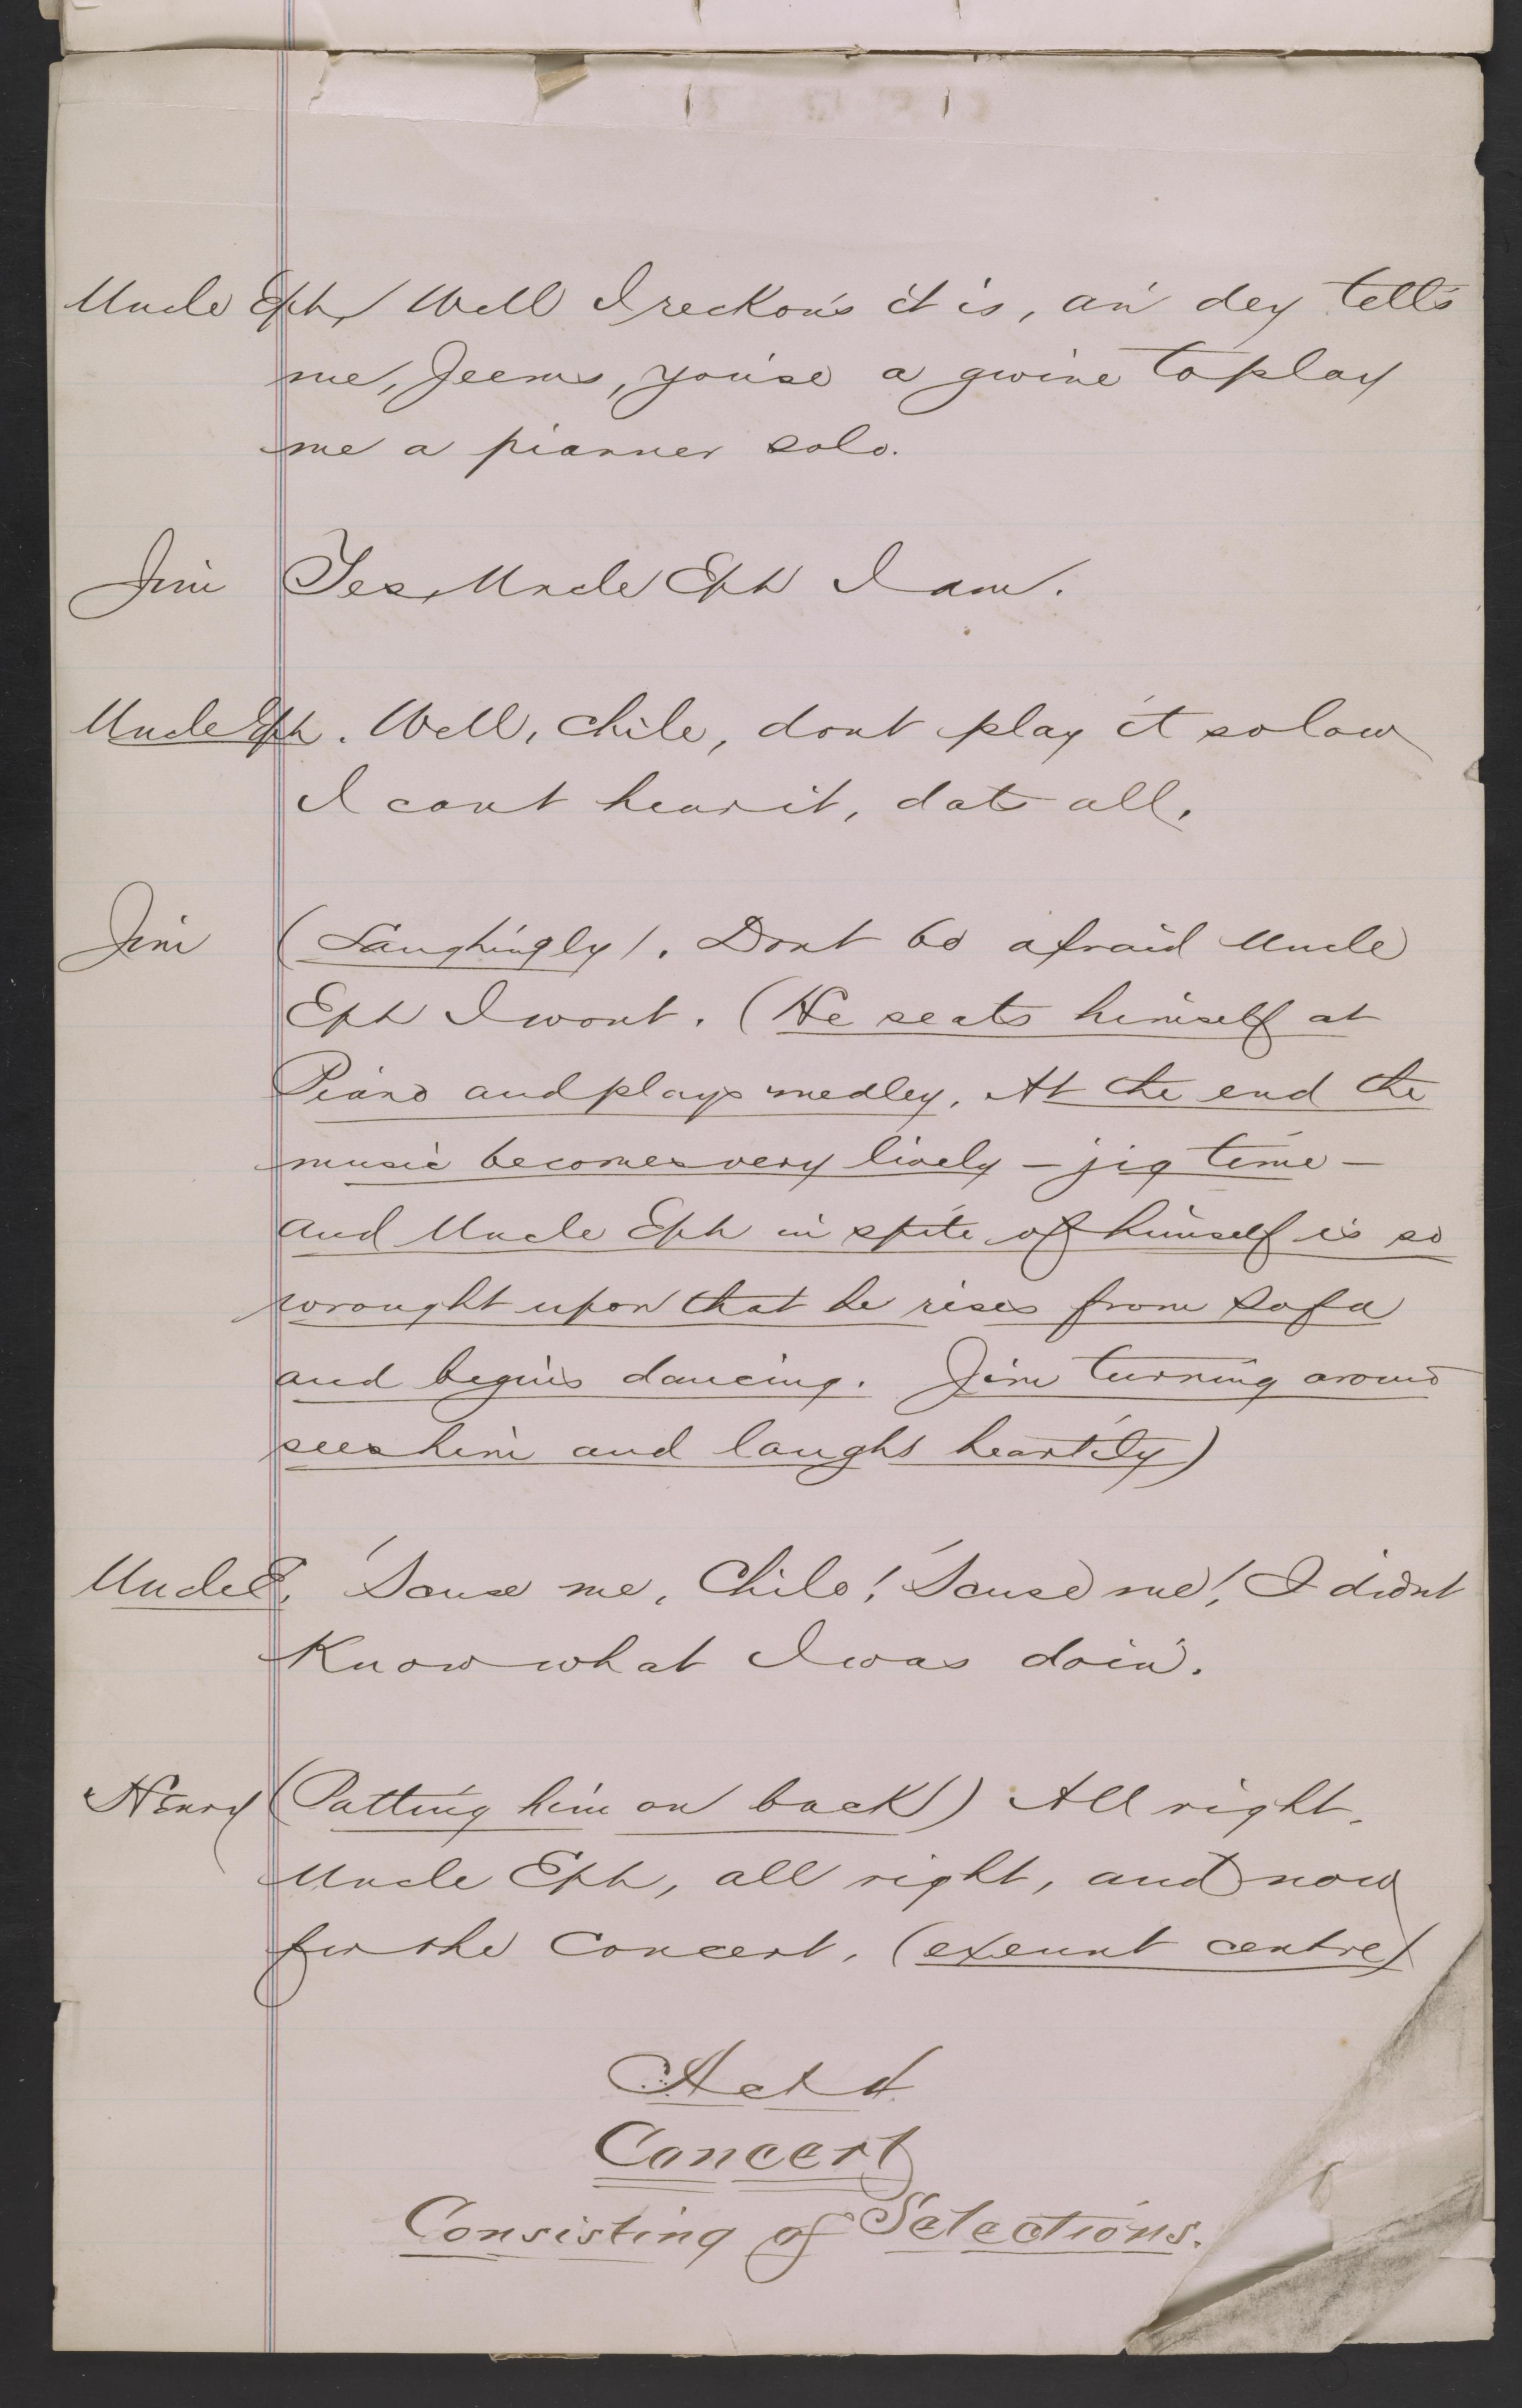 Uncle Eph, Well I reckon's it is, an' dey tell's
me, Jeems, you'se a gwine to play
me a pianner solo.
Jim Yes, Uncle Eph I am.
Uncle Eph. Well, chile, dont play it so low
I cant hear it, dats all.
Jim (Laughingly). Dont be afraid Uncle
Eph I wont. (He seats himself at
Piano and plays medley. At the end the
music becomes very lively – jig time –
and Uncle Eph in spite of himself is so
wrought upon that he rises from sofa
and begins dancing. Jim turning around
sees him and laughs heartily)
Uncle E. 'Scuse me, Chile! 'Scuse me! I didnt
Know what I was doin'.
Henry (Patting him on back) All right.
Uncle Eph, all right, and now
for the concert. (exeunt centre)
Act 4
Concert
Consisting of Selections.